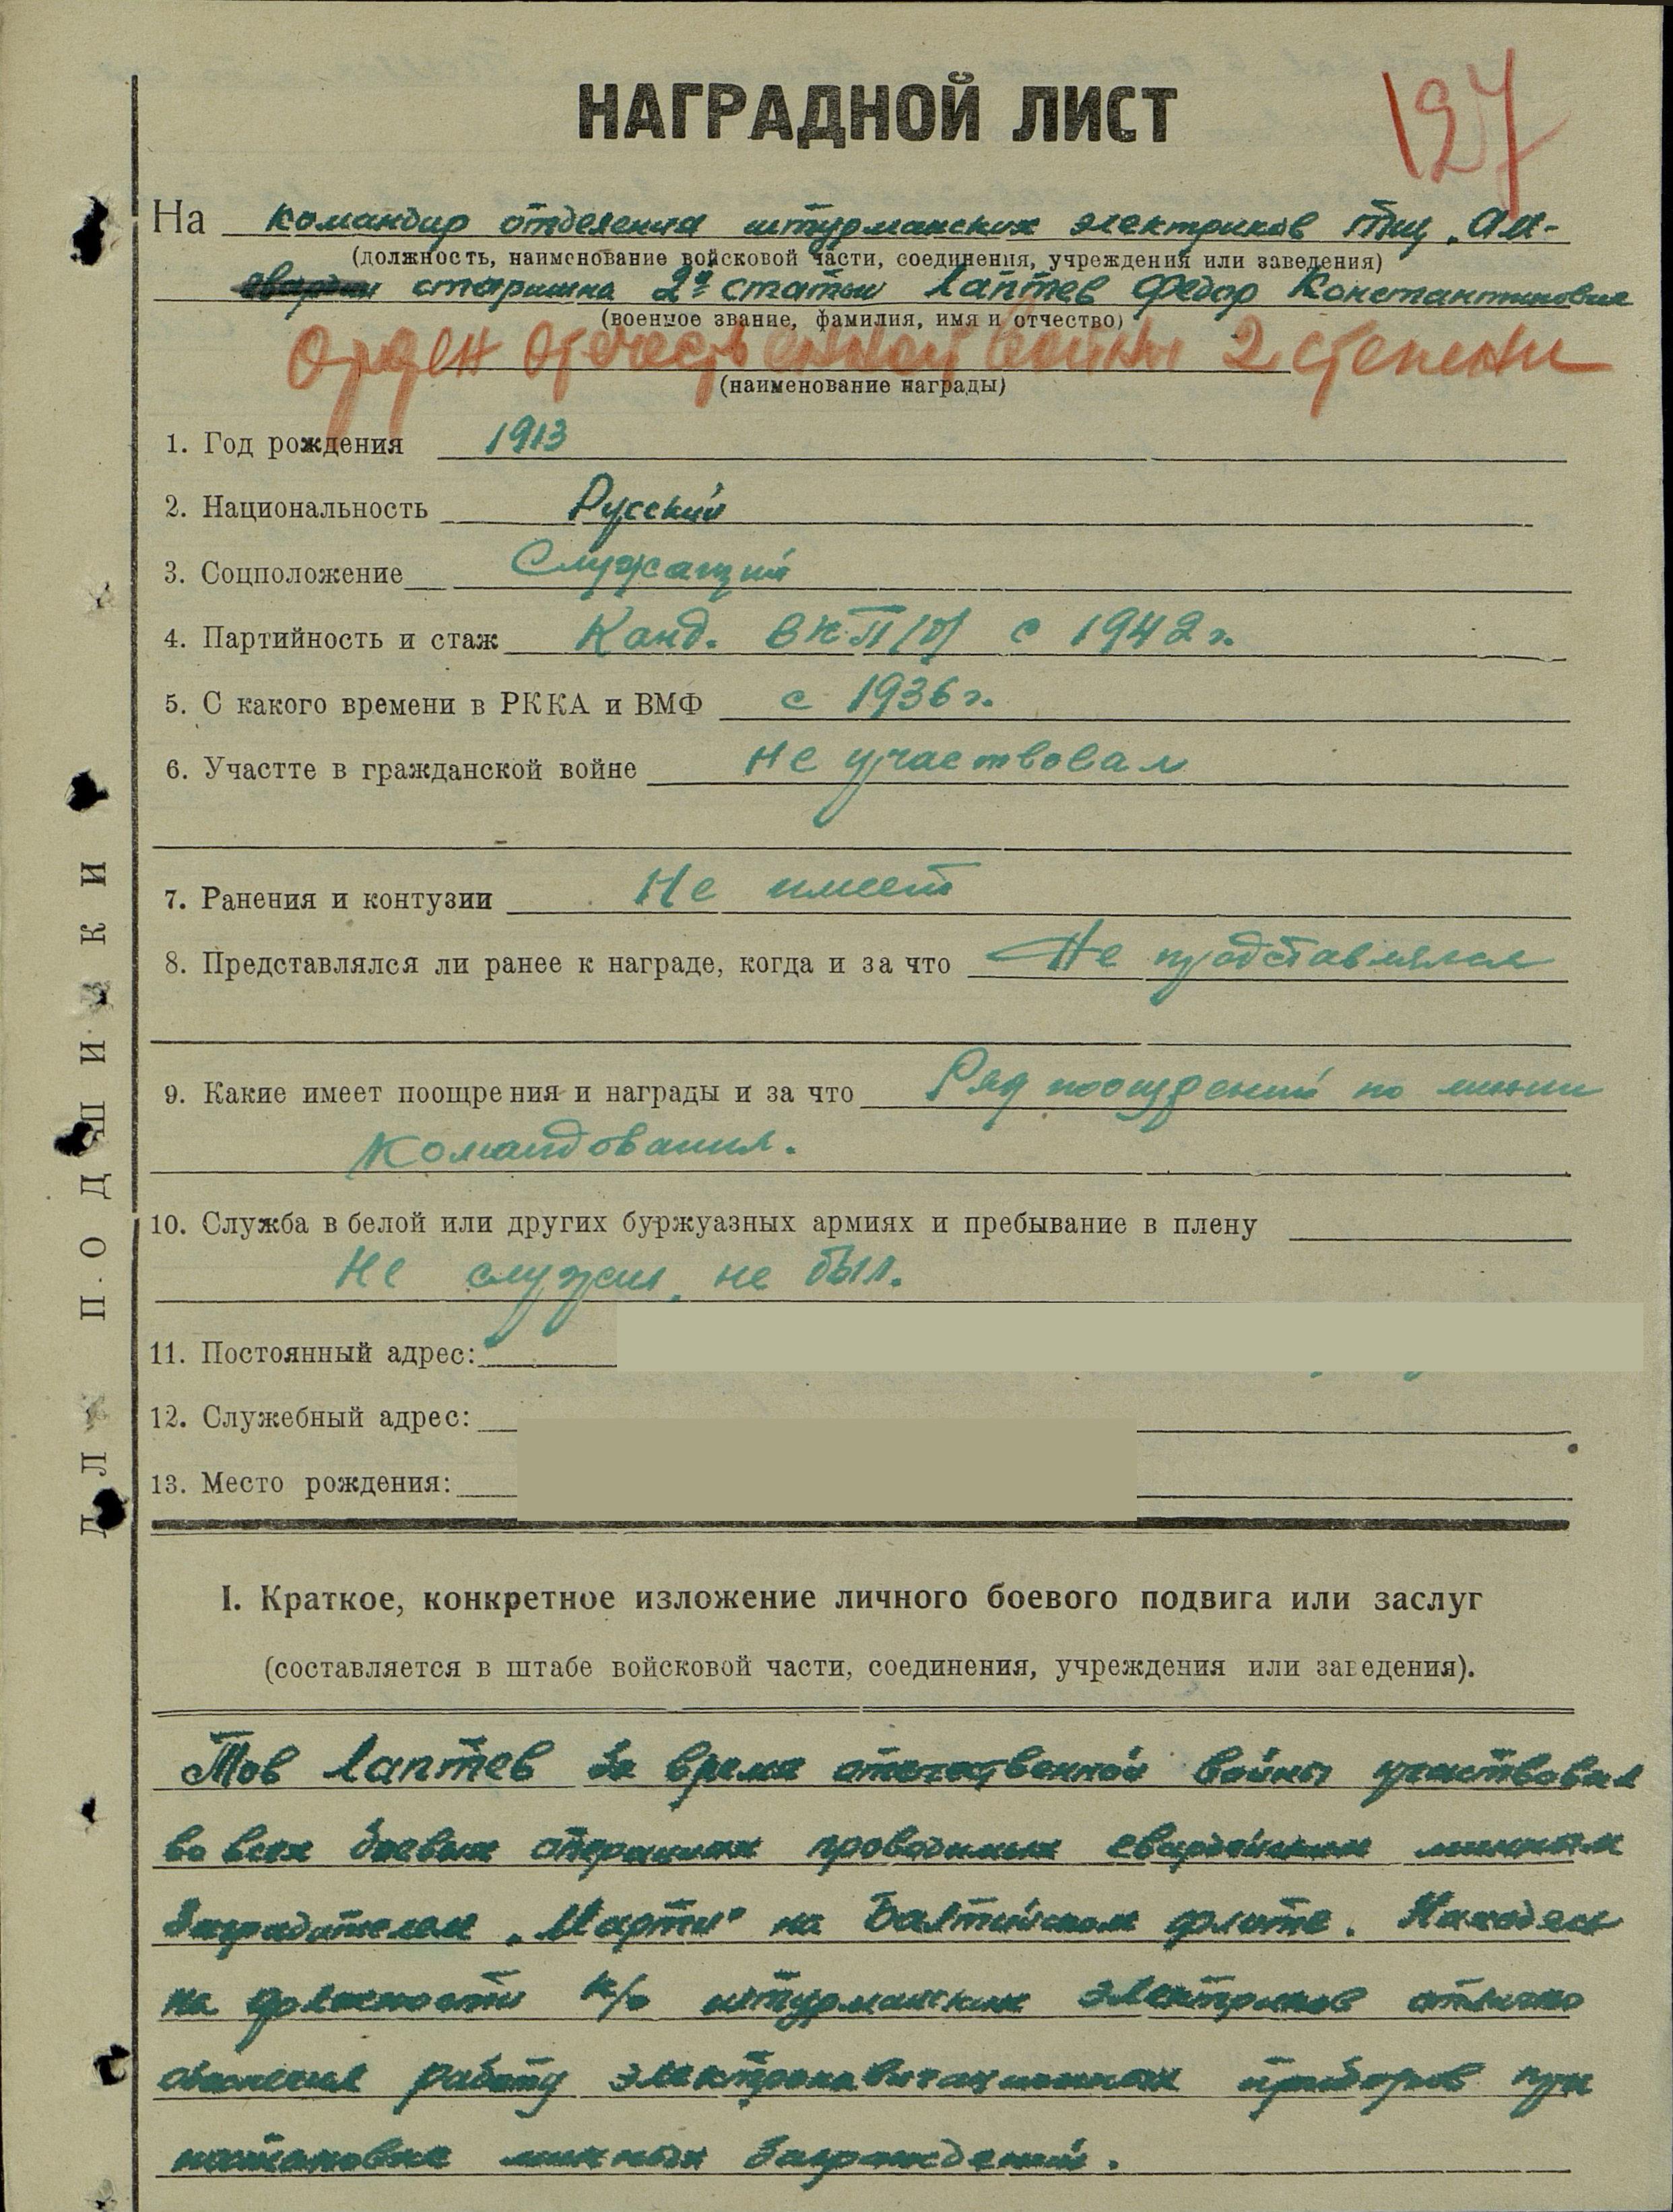 127
НАГРАДНОЙ ЛИСТ
На командир отделения штурманских электриков ТЩ „Ам-
(должность, наименование войсковой части, соединения, учреждения или заведения)
старшина 2й статьи Лаптев Федор Константинович
(военное звание, фамилия, имя и отчество)
Орден отечественной войны 2 степени
(наименование награды)
1. Год рождения 1913
2. Национальность Русский
3. Соцположение Служащий
4. Партийность и стаж Канд. ВКП/б/ с 1942 г.
5. С какого времени в РККА и ВМФ с 1936 г.
6. Участте в гражданской войне Не участвовал
7. Ранения и контузии Не имеет
8. Представлялся ли ранее к награде, когда и за что Не представлялся
9. Какие имеет поощрения и награды и за что Ряд поощрений по линии
командования.
10. Служба в белой или других буржуазных армиях и пребывание в плену
Не служил, не был.
11. Постоянный адрес:
12. Служебный адрес:
13. Место рождения:
ДЛ ПОДШИВКИ
I. Краткое, конкретное изложение личного боевого подвига или заслуг
(составляется в штабе войсковой части, соединения, учреждения или заведения).
Тов Лаптев за время отечественной войны участвовал
во всех боевых операциях проводимых гвардейским минным
заградителем „Марти" на Балтийском флоте. Находясь
на должности к/о штурманских электриков отлично
обеспечил работу электронавигационных приборов при
постановке минных заграждений.